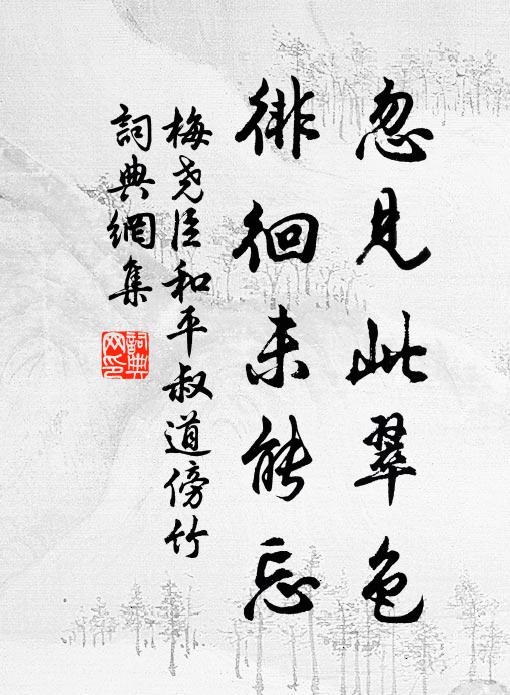 忽见此翠色
徘徊未能忘
梅尧臣和平叔道傍竹
詞典網集
詞典网印